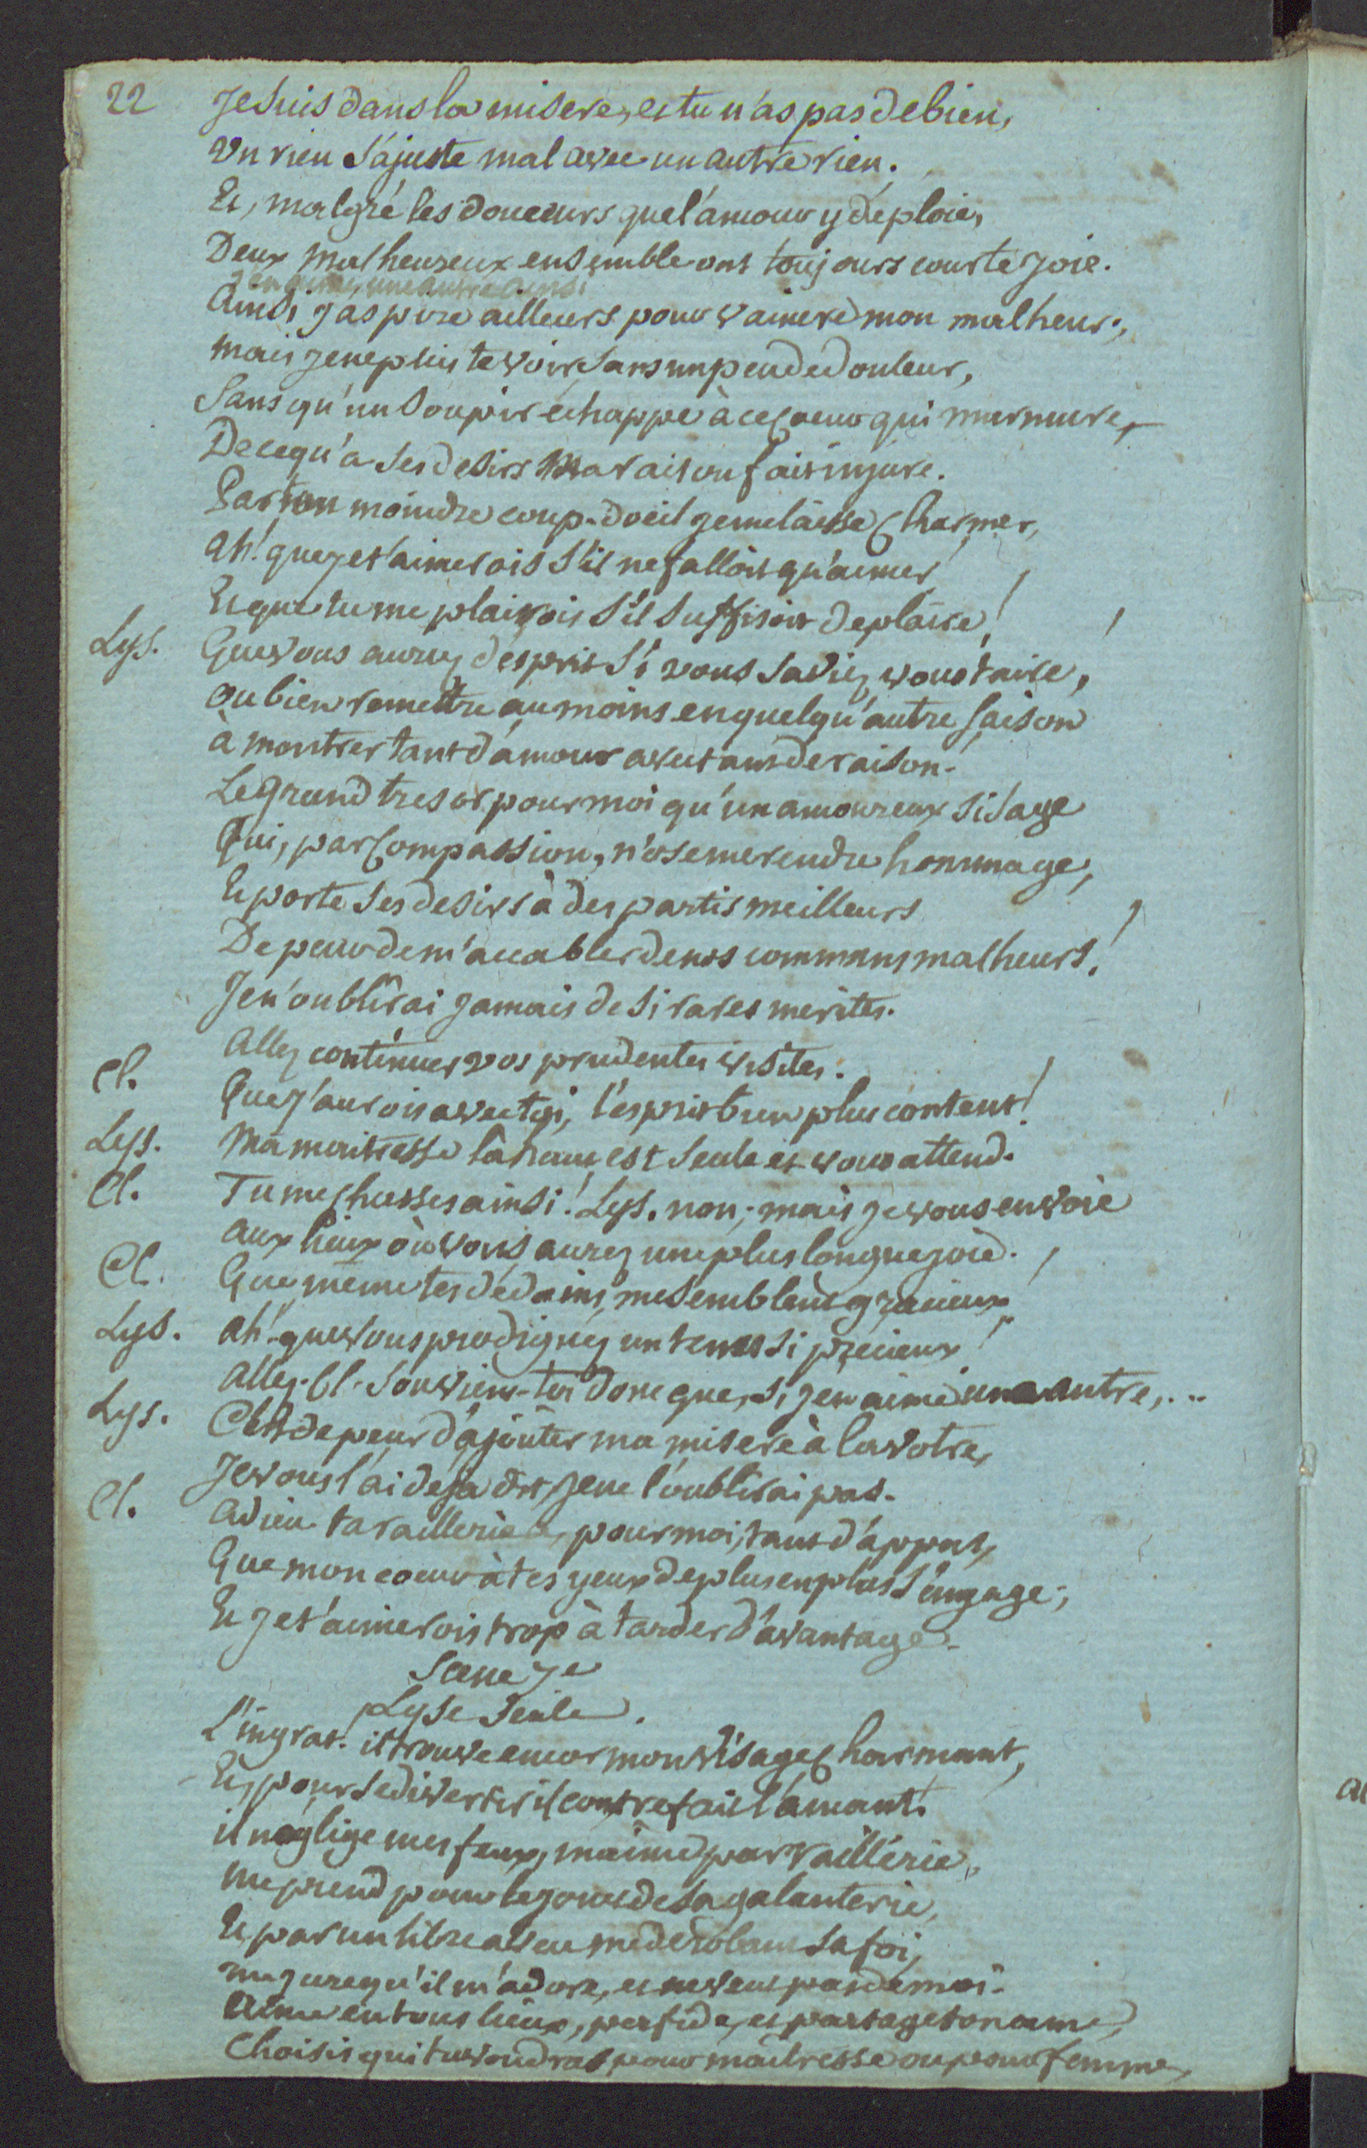 22 Je suis dans la misere, et tu n'as pas de bien,
Un rien s'ajuste mal avec un autre rien.
Et, malgré les douceurs que l'amour y deploie,
Deux malheureux ensemble ont toujours courte joie.
j'en aime une autre ainsi
Ainsi j'aspire ailleurs pour vaincre mon malheur;
mais je ne puis te voir sans un peu de douleur,
Sans qu'un soupir échappe à ce coeur qui murmure,
De ce qu'a ses desirs ma raison fait injure.
Par ton moindre coup-d'oeil je me laisse charmer,
Ah! que je t'aimerois s'il ne falloit qu'aimer!
Et que tu me plairois s'il suffisoit de plaire!
Lys. Que vous auriez d'esprit si vous saviez vous taire,
ou bien remettre au moins en quelqu'autre saison
à montrer tant d'amour avec tant de raison.
Le grand tresor pour moi qu'un amoureux si sage
Qui, par compassion, n'ose me rendre hommage,
Et porte ses desirs à des partis meilleurs
De peur de m'accabler de nos communs malheurs!
Je n'oublirai jamais de si rares merites.
Allez continuer vos prudentes visites.
Cl. Que j'aurois avec toi, l'esprit bien plus content!
Lys. Ma maitresse là haut est seule et vous attend.
Cl. Tu me chasses ainsi! Lys. non; mais je vous envoie
aux lieux où vous aurez une plus longue joie.
Cl. Que même tes dédains me semblent gracieux!
Lys. ah! que vous prodiguez un tems si precieux!
Allez. Cl. Souviens-toi donc que, si j'en aime une autre,...
Lys. C'est de peur d'ajouter ma misere à la votre,
Je vous l'ai deja dit, je ne l'oublirai pas.
Cl. Adieu ta raillerie a, pour moi, tant d'appas,
Que mon coeur à tes yeux de plus en plus s'engage;
Et je t'aimerois trop à tarder d'avantage.
Scene 7e
Lyse seule.
L'ingrat. il trouve encor mon visage charmant,
Et, pour se divertir il contrefait l'amant.
il néglige mes feux, m'aime par raillerie,
me prend pour le jouet de sa galanterie,
Et, par un libre aveu me derobant sa foi,
me jure qu'il m'adore, et ne veut pas de moi.
Aime en tous lieux, perfide, et partage ton ame,
Choisis qui tu voudras pour maîtresse ou pour femme,